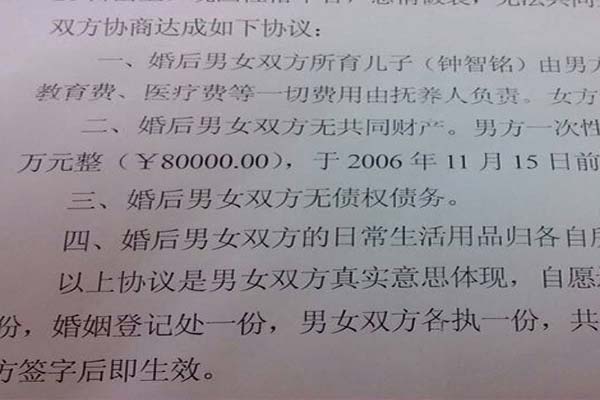 双方协商达成如下协议：
一、婚后男女双方所育儿子（钟智铭）由男方
教育费、医疗费等一切费用由抚养人负责。女方
二、婚后男女双方无共同财产。男方一次性
万元整（￥80000.00），于 2006 年 11 月 15 日前
三、婚后男女双方无债权债务。
四、婚后男女双方的日常生活用品归各自所
以上协议是男女双方真实意思体现，自愿
份，婚姻登记处一份，男女双方各执一份，共
方签字后即生效。